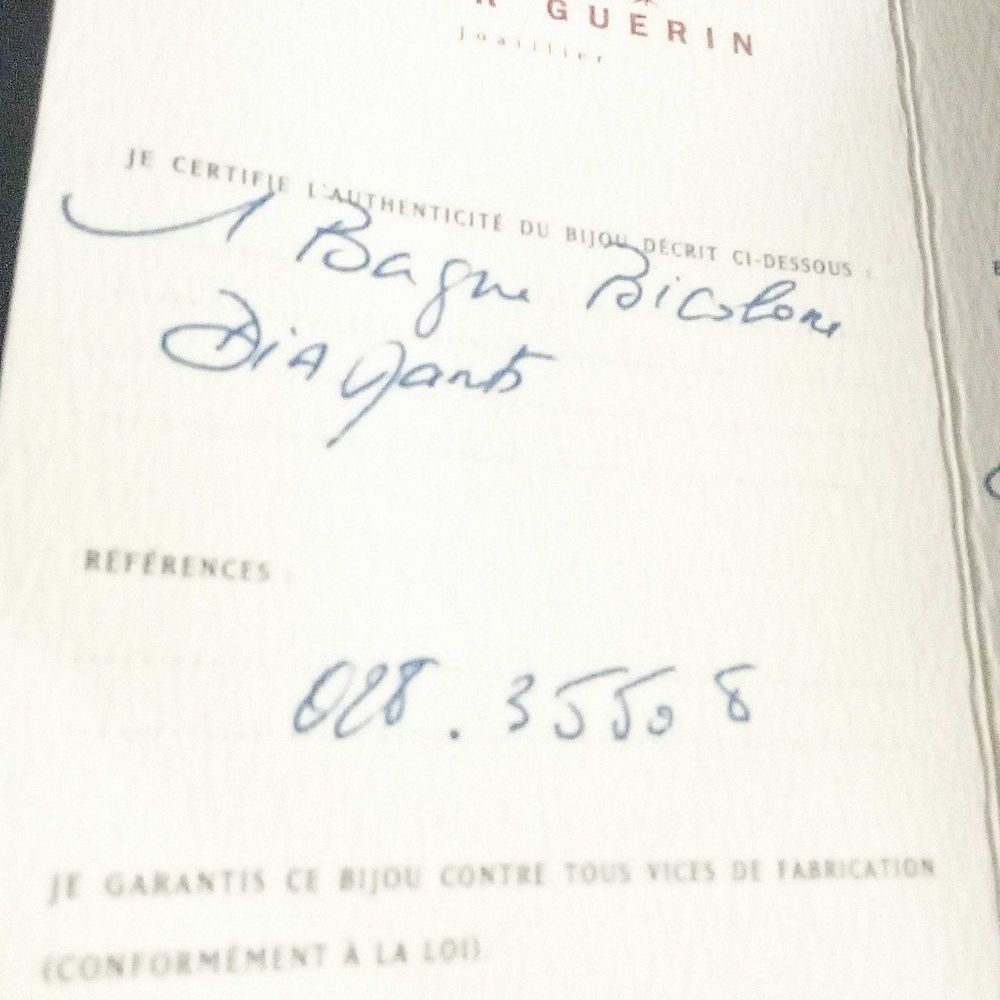 GUERIN
Joaillier
JE CERTIFIE L'AUTHENTICITÉ DU BIJOU DÉCRIT CI-DESSOUS :
1 Bague Bicolore
Diamants
RÉFÉRENCES :
028.35508
JE GARANTIS CE BIJOU CONTRE TOUS VICES DE FABRICATION
(CONFORMÉMENT À LA LOI).